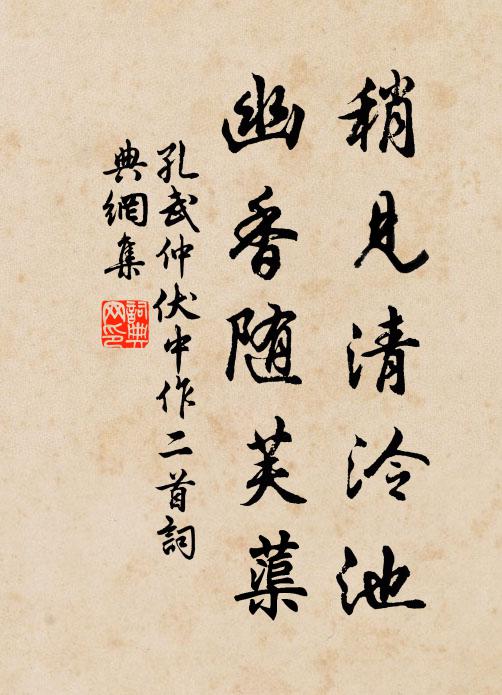 稍見清泠池
幽香随芙蕖
孔武仲伏中作二首詞
典網集
詞典
网印